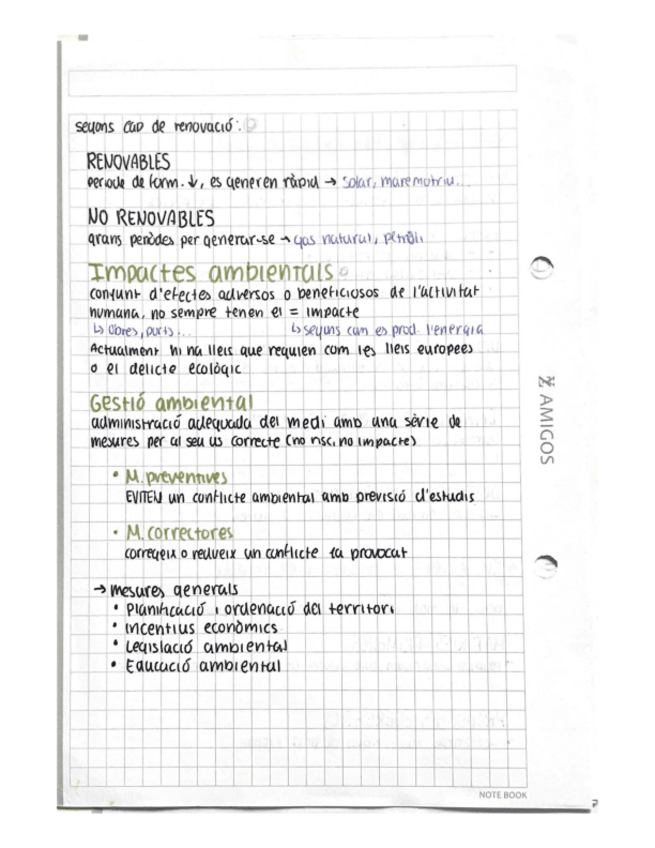 segons cap de renovació:
RENOVABLES
periode de form. ↓, es generen ràpid → solar, maremotriu...
NO RENOVABLES
grans períodes per generar-se → gas natural, petròli
Impactes ambientals
conjunt d'efectes adversos o beneficiosos de l'activitat
humana, no sempre tenen el = impacte
↳ obres, ports... ↳ segons com es prod. l'energia
Actualment hi ha lleis que regulen com les lleis europees
o el delicte ecològic
Gestió ambiental
administració adequada del medi amb una sèrie de
mesures per al seu us correcte (no risc, no impacte)
• M. preventives
EVITEN un conflicte ambiental amb previsió d'estudis
• M. correctores
corregeix o redueix un conflicte ja provocat
→ mesures generals
• Planificació i ordenació del territori
• Incentius econòmics
• Legislació ambiental
• Educació ambiental
AMIGOS
NOTE BOOK